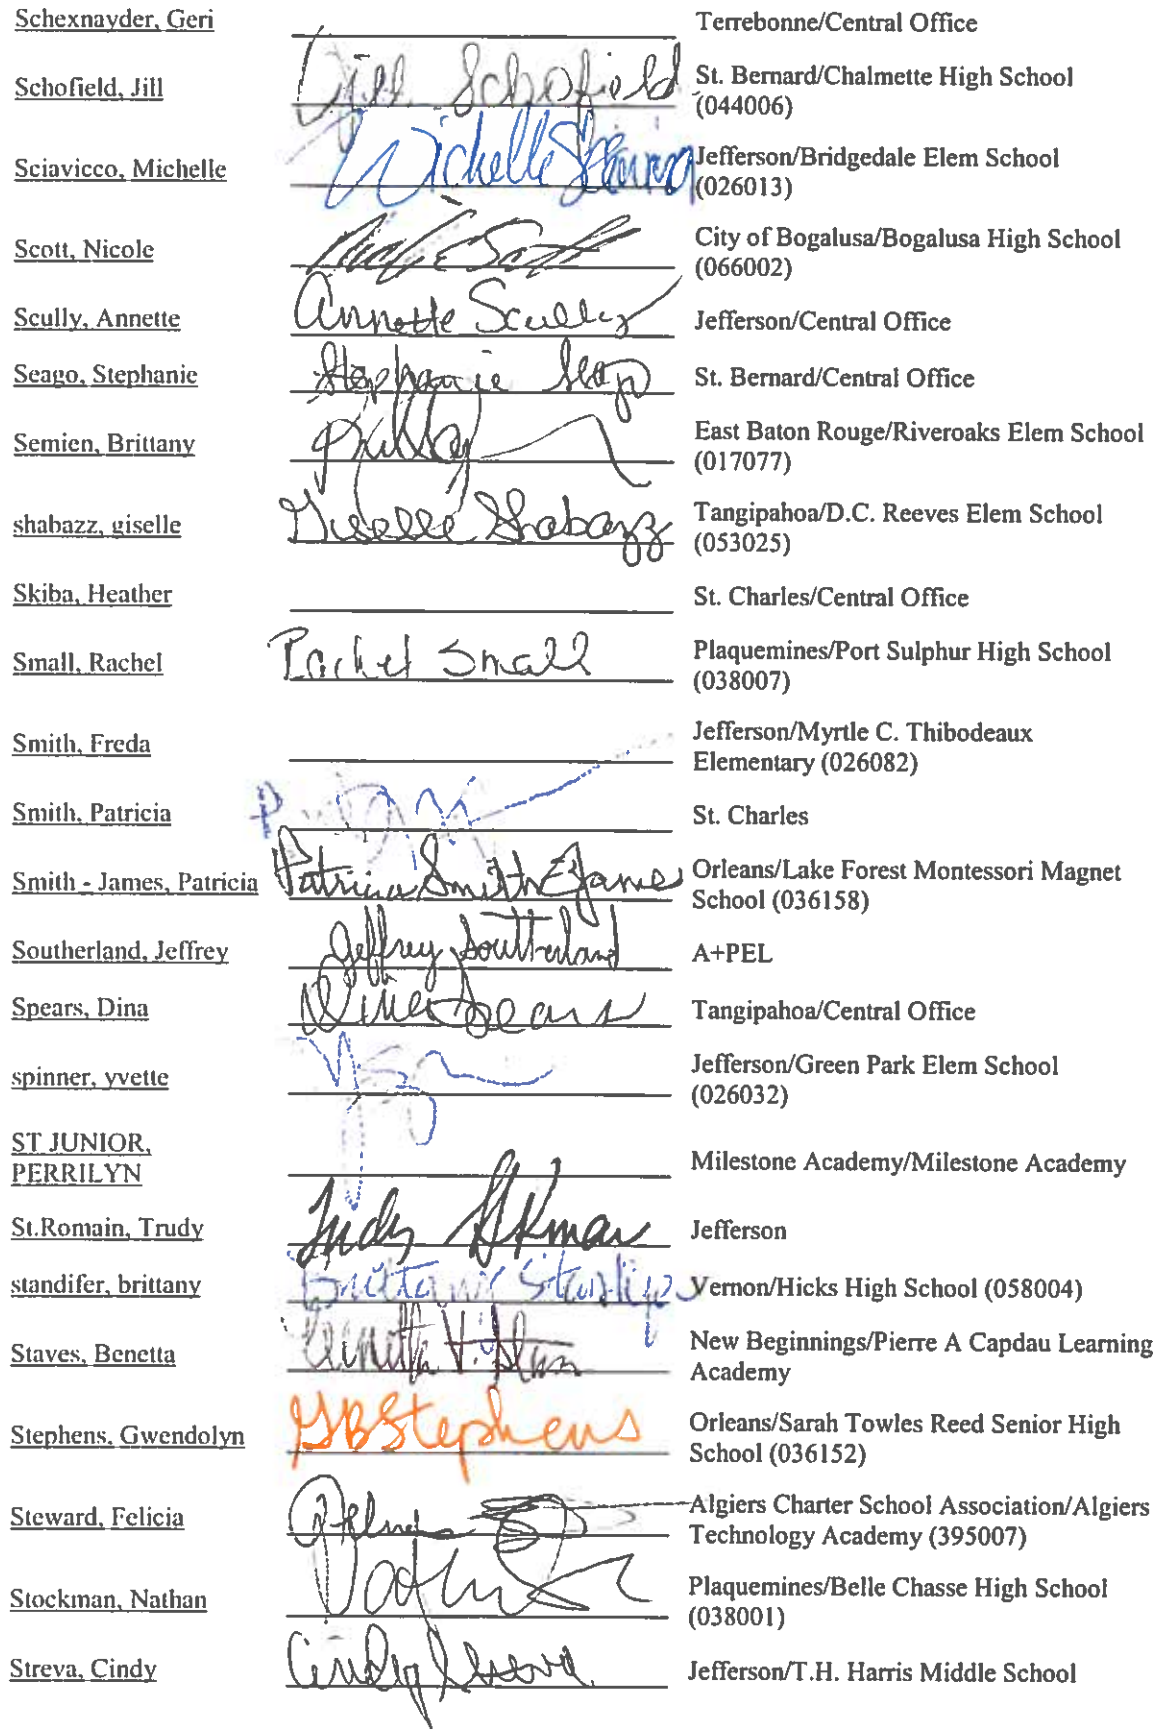 Schexnayder, Geri Terrebonne/Central Office
Schofield, Jill Jill Schofield St. Bernard/Chalmette High School
(044006)
Sciavicco, Michelle Michelle Jefferson/Bridgedale Elem School
(026013)
Scott, Nicole City of Bogalusa/Bogalusa High School
(066002)
Scully, Annette Annette Scully Jefferson/Central Office
Seago, Stephanie Stephanie Seago St. Bernard/Central Office
Semien, Brittany East Baton Rouge/Riveroaks Elem School
(017077)
shabazz, giselle Giselle Shabazz Tangipahoa/D.C. Reeves Elem School
(053025)
Skiba, Heather St. Charles/Central Office
Small, Rachel Rachel Small Plaquemines/Port Sulphur High School
(038007)
Smith, Freda Jefferson/Myrtle C. Thibodeaux
Elementary (026082)
Smith, Patricia St. Charles
Smith - James, Patricia Patricia Smith James Orleans/Lake Forest Montessori Magnet
School (036158)
Southerland, Jeffrey Jeffrey Southerland A+PEL
Spears, Dina Dina Spears Tangipahoa/Central Office
spinner, yvette Jefferson/Green Park Elem School
(026032)
ST JUNIOR,
PERRILYN Milestone Academy/Milestone Academy
St.Romain, Trudy Trudy St.Romain Jefferson
standifer, brittany Brittany Standifer Vernon/Hicks High School (058004)
Staves, Benetta New Beginnings/Pierre A Capdau Learning
Academy
Stephens, Gwendolyn GBStephens Orleans/Sarah Towles Reed Senior High
School (036152)
Steward, Felicia Algiers Charter School Association/Algiers
Technology Academy (395007)
Stockman, Nathan Plaquemines/Belle Chasse High School
(038001)
Streva, Cindy Cindy Streva Jefferson/T.H. Harris Middle School